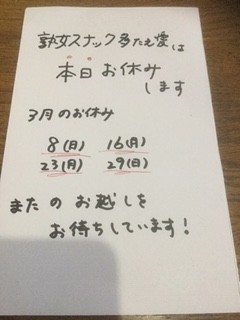 熟女スナック多たえ愛は
本日お休み
します
3月のお休み
8(日) 16(月)
23(月) 29(日)
またのお越しを
お待ちしています!